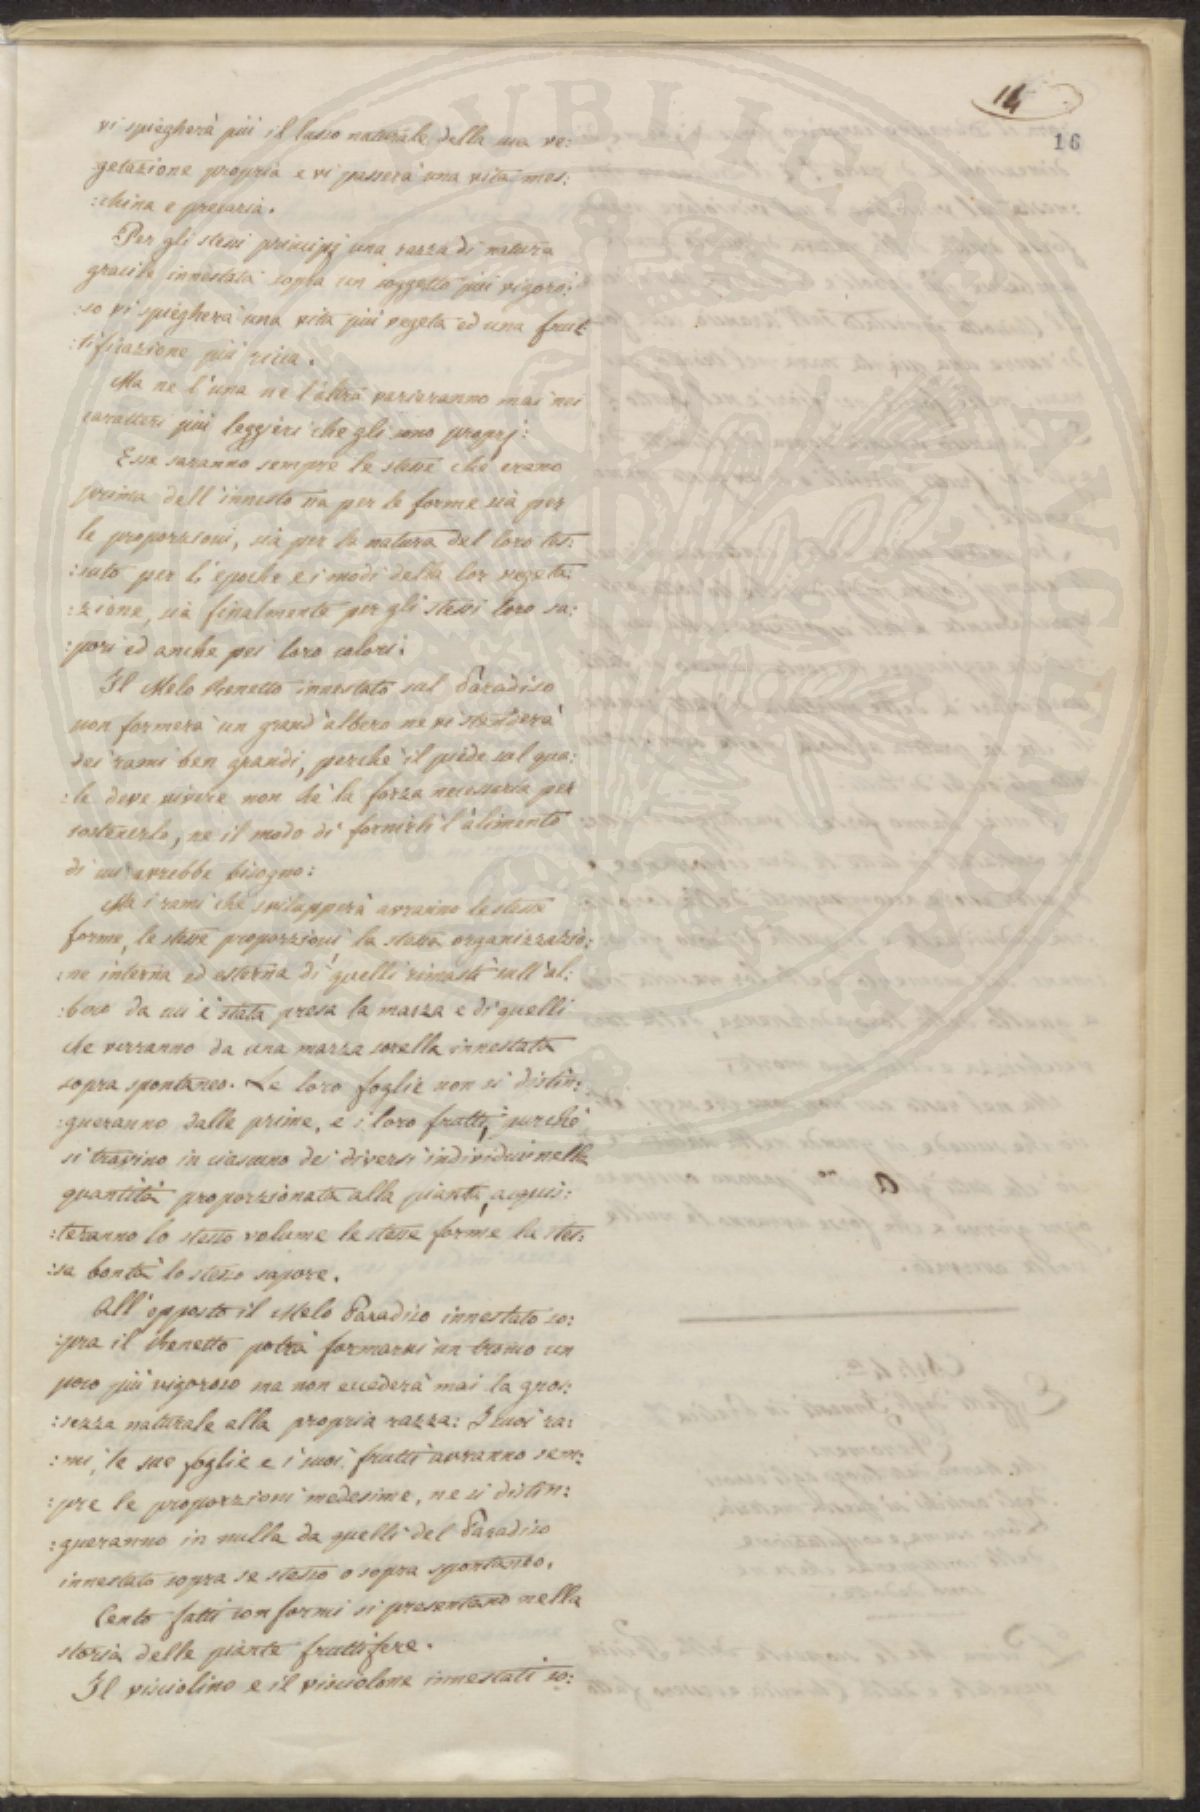 14
16
vi spiegherà più il lusso naturale della sua ve:
getazione propria e vi passerà una vita mes:
:china e precaria.
Per gli stessi principj una razza di natura
gracile innestata sopra un soggetto più vigoro:
:so vi spiegherà una vita più vegeta ed una frut
:tificazione più ricca.
Ma ne l'una ne l'altra varieranno mai nei
caratteri più leggieri che gli sono proprj:
Esse saranno sempre le stesse che erano
prima dell'innesto sia per le forme sia per
le proporzioni, sia per la natura del loro tes:
:suto per l'epoche e i modi della lor vegeta:
:zione, sia finalmente per gli stessi loro sa:
:pori ed anche pei loro colori.
Il Melo Renetto innestato sul Paradiso
non formerà un grand'albero ne vi stenderà
dei rami ben grandi, perchè il piede sul qua:
:le deve vivere non hà la forza necessaria per
sostenerlo, ne il modo di fornirli l'alimento
di cui avrebbe bisogno:
Ma i rami che svilupperà avranno le stesse
forme, le stesse proporzioni, la stessa organizzazio:
:ne interna ed esterna di quelli rimasti sull'al:
:bero da cui è stata presa la marza e di quelli
che verranno da una marza sorella innestata
sopra spontaneo. Le loro foglie non si distin:
:gueranno dalle prime, e i loro frutti, purchè
si travino in ciascuno dei diversi individui nella
quantità proporzionata alla pianta, acquis:
:teranno lo stesso volume le stesse forme la stes:
:sa bontà lo stesso sapore.
All'opposto il Melo Paradiso innestato so:
:pra il Renetto potrà formarvi un tronco un
poco più vigoroso ma non eccederà mai la gros:
:sezza naturale alla propria razza: I suoi ra:
:mi, le sue foglie e i suoi frutti avranno sem:
:pre le proporzioni medesime, ne si distin:
:gueranno in nulla da quelli del Paradiso
innestato sopra se stesso o sopra spontaneo.
Cento fatti conformi si presentano nella
storia delle piante fruttifere.
Il visciolino e il visciolone innestati so: